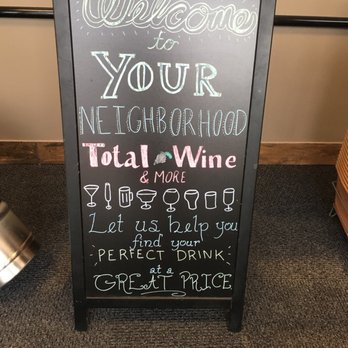 Welcome
to
YOUR
NEIGHBORHOOD
Total Wine
& MORE
Let us help you
find your
PERFECT DRINK
at a
GREAT PRICE